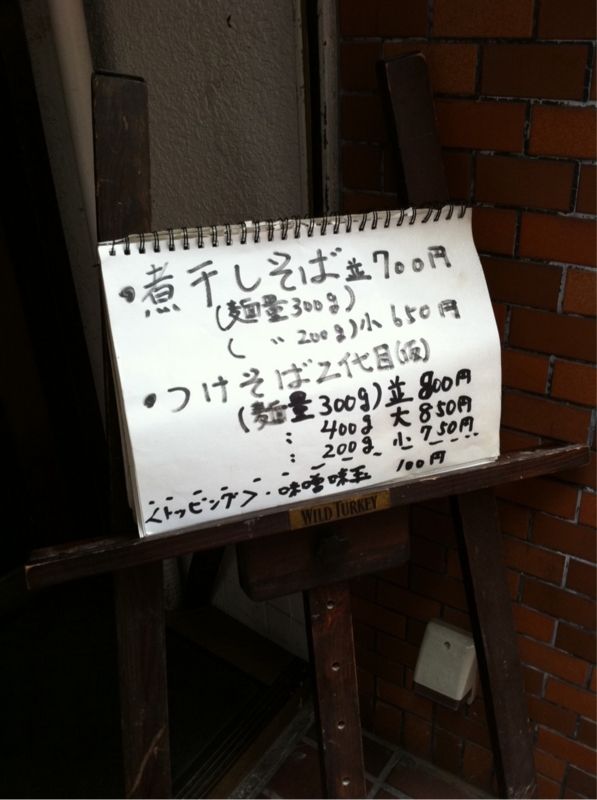 ・煮干しそば並700円
(麺量300g)
( 〃 200g)小650円
・つけそば2代目(仮)
(麺量300g)並800円
: 400g 大850円
: 200g 小750円
<トッピング>・味噌味玉 100円
WILD TURKEY